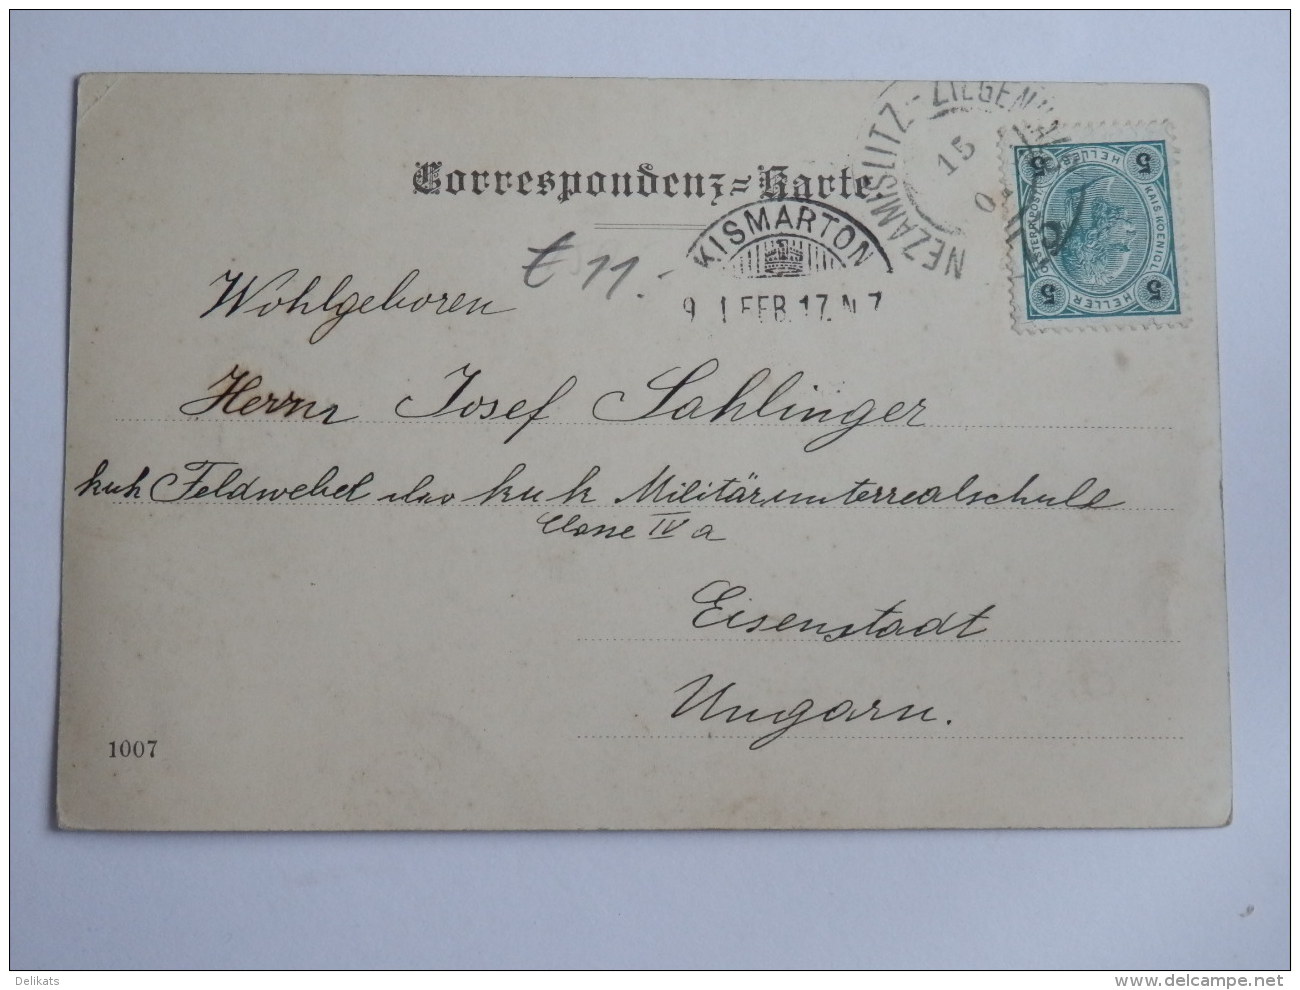 Correspondenz=Karte.
NEZAMISLITZ -
15
KISMARTON
9 1 FEB. 17. N 7
€ 11.-
5 5
HELLER
KAIS. KOENIGL.
HELLER
5 5
Wohlgeboren
Herrn Josef Sahlinger
kuk Feldwebel der k u k Militärunterrealschule
Classe IV a
Eisenstadt
Ungarn.
1007
Delikats
delcampe.net